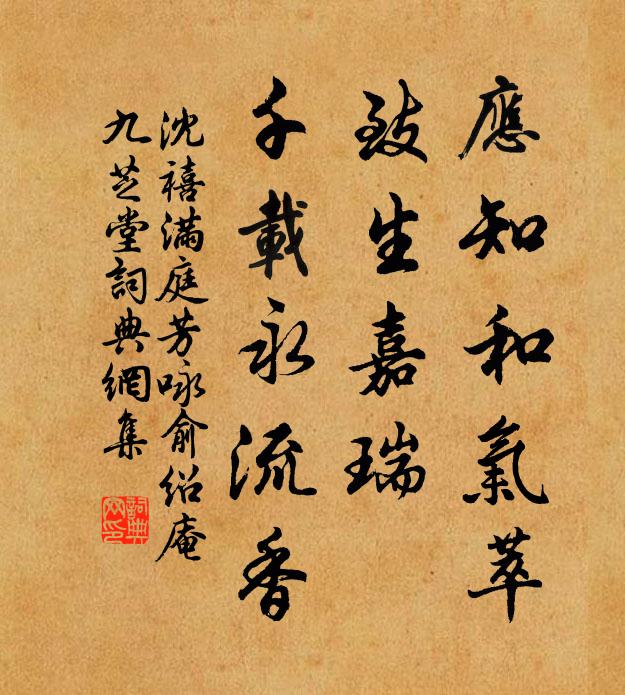 應知和氣萃
致生嘉瑞
千載永流香
沈禧滿庭芳咏俞紹庵
九芝堂詞典網集
詞典網印